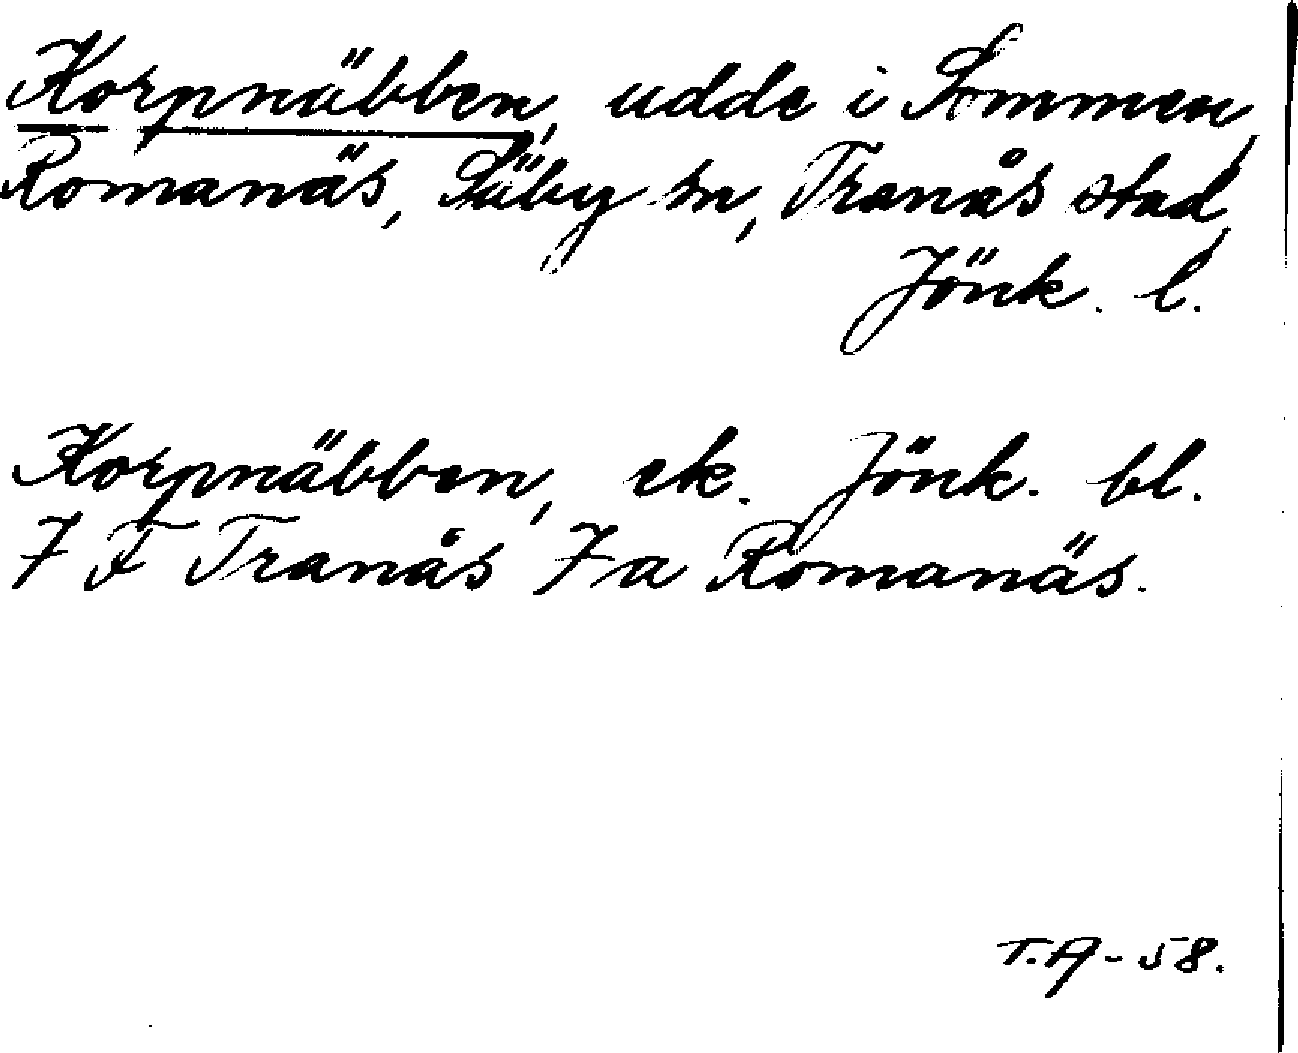 Korpnäbben, udde i Sommen,
Romanäs, Säby sn, Tranås stad,
Jönk. l.
Korpnäbben, ek. Jönk. bl.
7 F Tranås 7a Romanäs.
T.A-58.